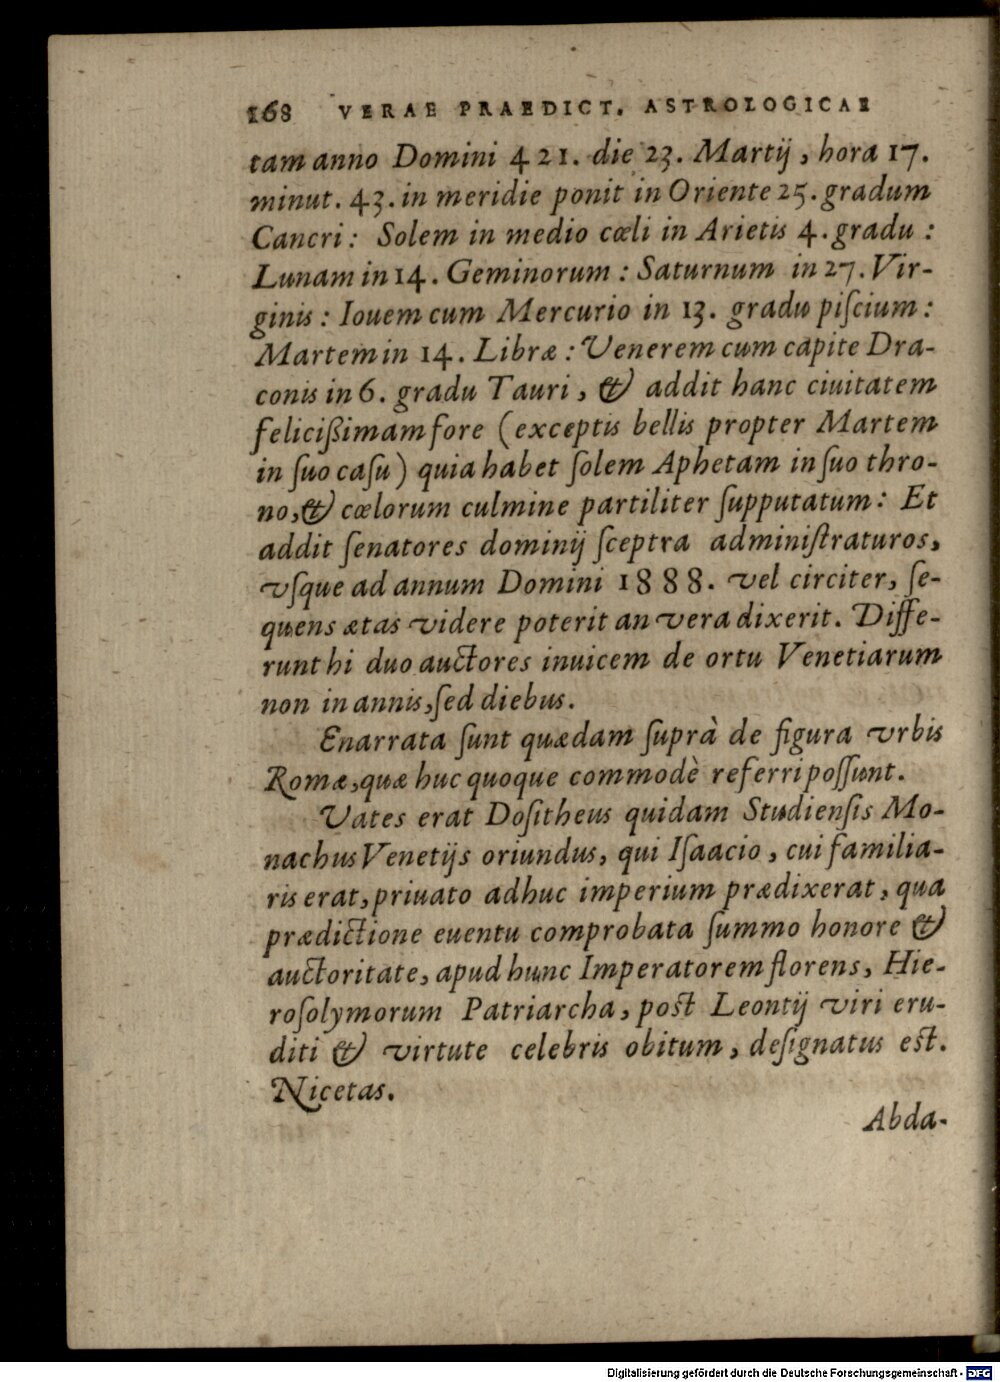 168 VERAE PRAEDICT. ASTROLOGICAE
tam anno Domini 421. die 23. Martij, hora 17.
minut. 43. in meridie ponit in Oriente 25. gradum
Cancri: Solem in medio cœli in Arietis 4. gradu:
Lunam in 14. Geminorum: Saturnum in 27. Vir-
ginis: Iouem cum Mercurio in 13. gradu piſcium:
Martem in 14. Libræ: Venerem cum capite Dra-
conis in 6. gradu Tauri, & addit hanc ciuitatem
feliciſſimam fore (exceptis bellis propter Martem
in ſuo caſu) quia habet ſolem Aphetam in ſuo thro-
no, & cœlorum culmine partiliter ſupputatum: Et
addit ſenatores dominij ſceptra adminiſtraturos,
vſque ad annum Domini 1888. vel circiter, ſe-
quens ætas videre poterit an vera dixerit. Diffe-
runt hi duo auctores inuicem de ortu Venetiarum
non in annis, ſed diebus.
Enarrata ſunt quædam ſuprà de figura vrbis
Romæ, quæ huc quoque commodè referri poſſunt.
Vates erat Doſitheus quidam Studienſis Mo-
nachus Venetijs oriundus, qui Iſaacio, cui familia-
ris erat, priuato adhuc imperium prædixerat, qua
prædictione euentu comprobata ſummo honore &
auctoritate, apud hunc Imperatorem florens, Hie-
roſolymorum Patriarcha, poſt Leontij viri eru-
diti & virtute celebris obitum, deſignatus eſt.
Nicetas.
Abda-
Digitalisierung gefördert durch die Deutsche Forschungsgemeinschaft - DFG